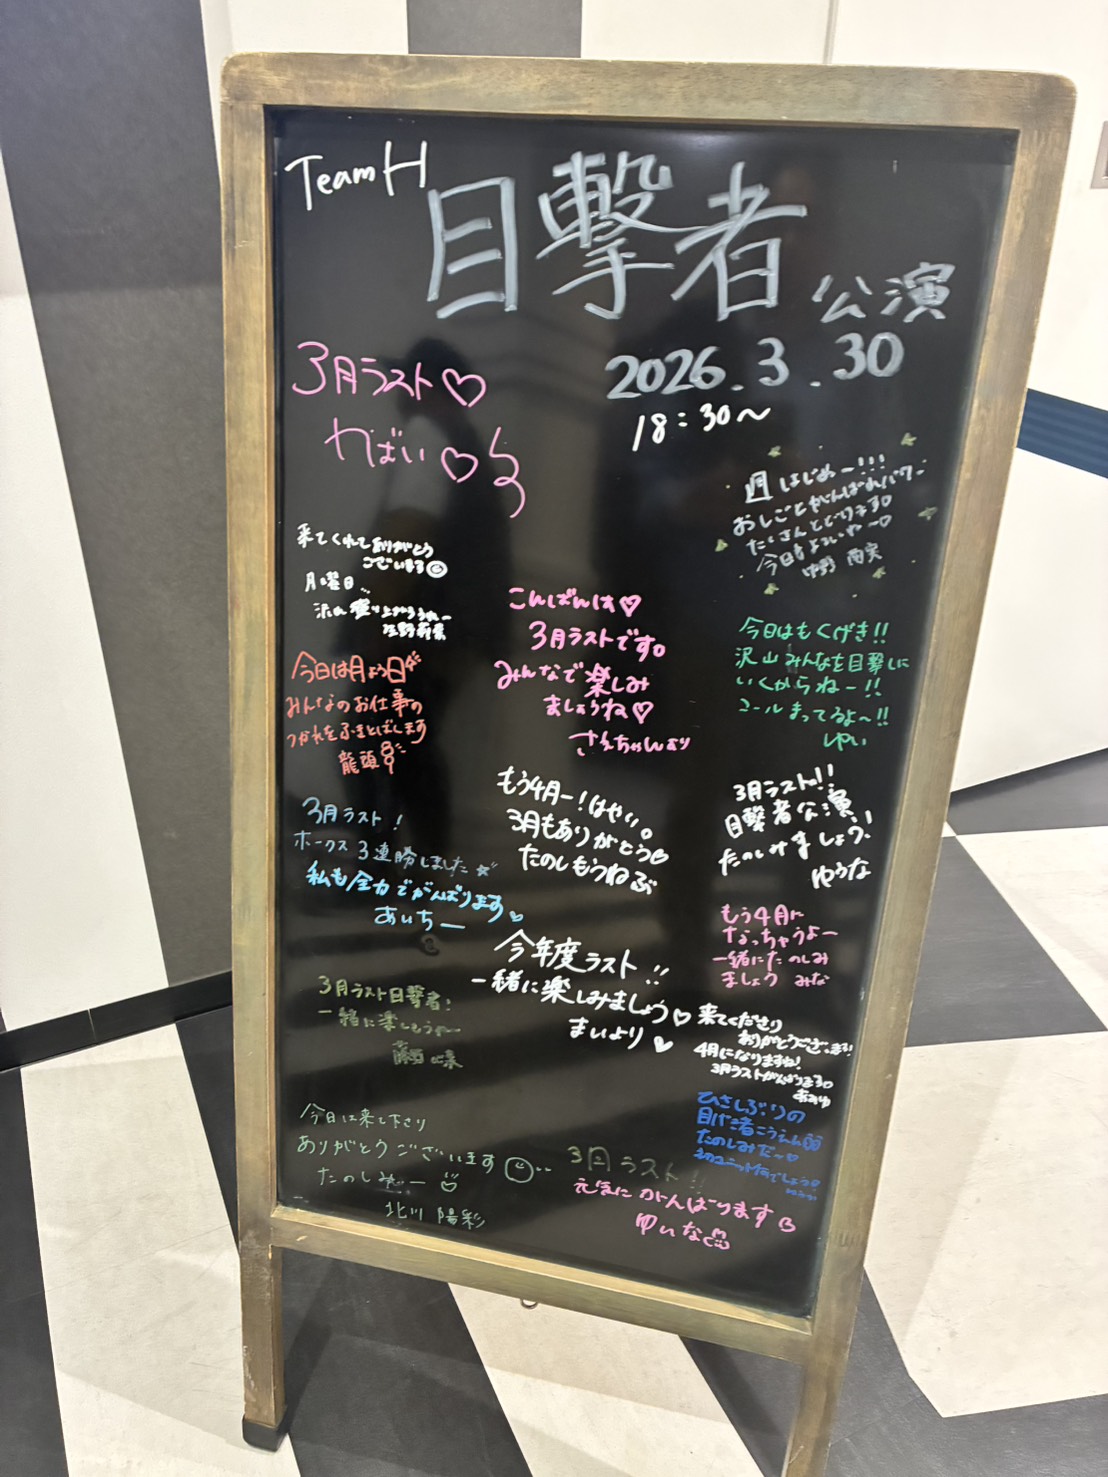 TeamH
目撃者
公演
2026.3.30
18:30〜
3月ラスト♡
やばい♡
週はじめー!!!
おしごとがんばれパワー
たくさんとどけます
今日もよろしくね〜
中野 雨実
来てくれてありがとう
ございます
月曜日…
沢山盛り上がろうねー
今日は月よう日
みんなのお仕事の
つかれをふきとばします
龍頭
こんばんは♡
3月ラストです。
みんなで楽しみ
ましょうね♡
さえちゃんより
今日はもくげき!!
沢山みんなを目撃しに
いくからねー!!
コールまってるよ〜!!
ゆい
3月ラスト!
ホークス3連勝しました☆
私も全力でがんばります♡
あいちー
もう4月ー!はやい。
3月もありがとう♡
たのしもうねぶ
3月ラスト!!
目撃者公演
たのしみましょう!
ゆうな
もう4月に
なっちゃうよー
一緒にたのしみ
ましょう みな
今年度ラスト!!
一緒に楽しみましょう♡
まいより♡
3月ラスト目撃者!
一緒に楽しもうねー
来てくださり
ありがとうございます!
4月になりますね!
3月ラストがんばります
ひさしぶりの
目げき者こうえん
たのしみだ〜♡
今日は来て下さり
ありがとうございます
たのしみー
北川 陽彩
3月ラスト!!
元気にがんばります
ゆいな